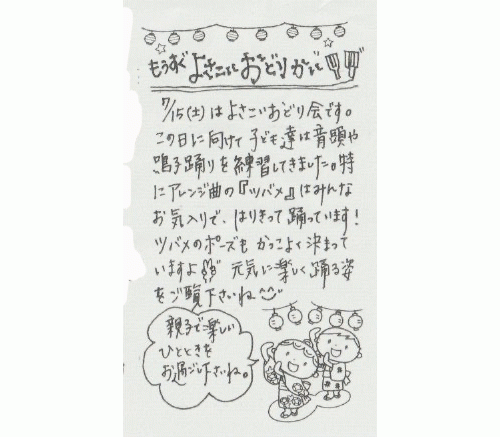 もうすぐ よさこい おどりが
7/15(土)はよさこいおどり会です。
この日に向けて子ども達は音頭や
鳴子踊りを練習してきました。特
にアレンジ曲の『ツバメ』はみんな
お気入りで、はりきって踊っています!
ツバメのポーズもかっこよく決まって
いますよ 元気に楽しく踊る姿
をご覧下さいね
親子で楽しい
ひとときを
お過ごし下さいね。